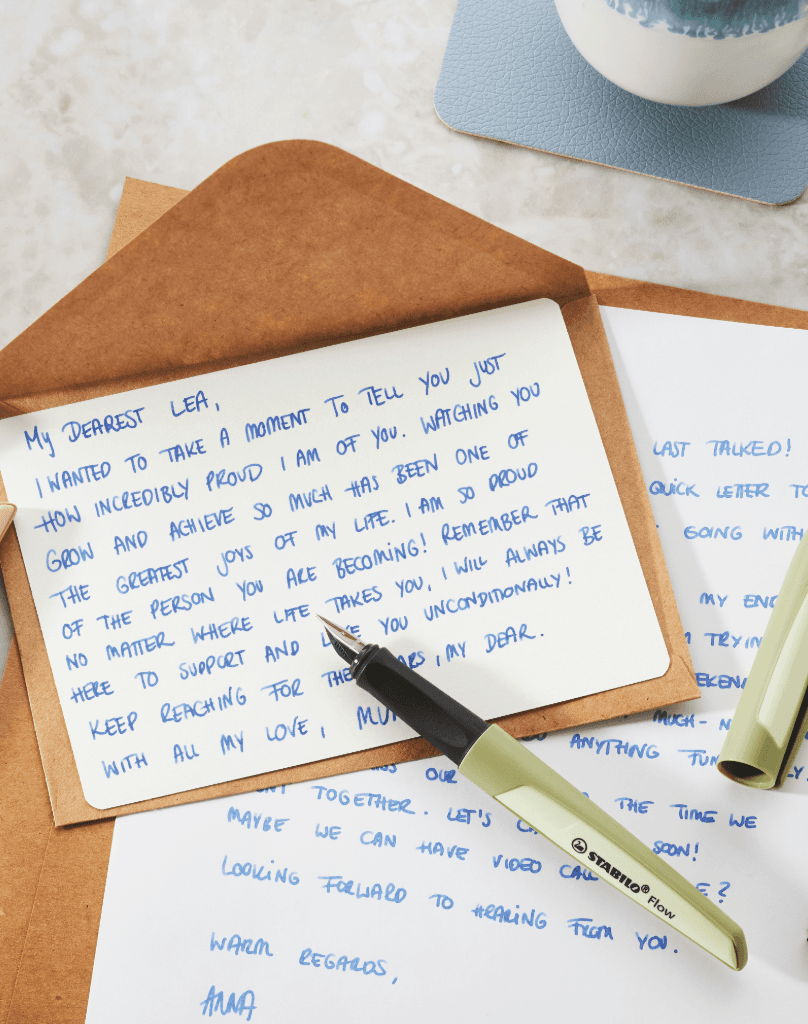 My DEAREST LEA,
I WANTED TO TAKE A MOMENT TO TELL YOU JUST
HOW INCREDIBLY PROUD I AM OF YOU. WATCHING YOU
GROW AND ACHIEVE SO MUCH HAS BEEN ONE OF
THE GREATEST JOYS OF MY LIFE. I AM SO PROUD
OF THE PERSON YOU ARE BECOMING! REMEMBER THAT
NO MATTER WHERE LIFE TAKES YOU, I WILL ALWAYS BE
HERE TO SUPPORT AND YOU UNCONDITIONALLY!
KEEP REACHING FOR , MY DEAR.
WITH ALL MY LOVE,
LAST TALKED!
QUICK LETTER TO
GOING WITH
MY
MUCH-
ANYTHING
OUR
TOGETHER. LET'S THE TIME WE
MAYBE WE CAN HAVE VIDEO SOON!
LOOKING FORWARD TO HEARING FROM YOU.
WARM REGARDS,
ANNA
STABILO® Flow